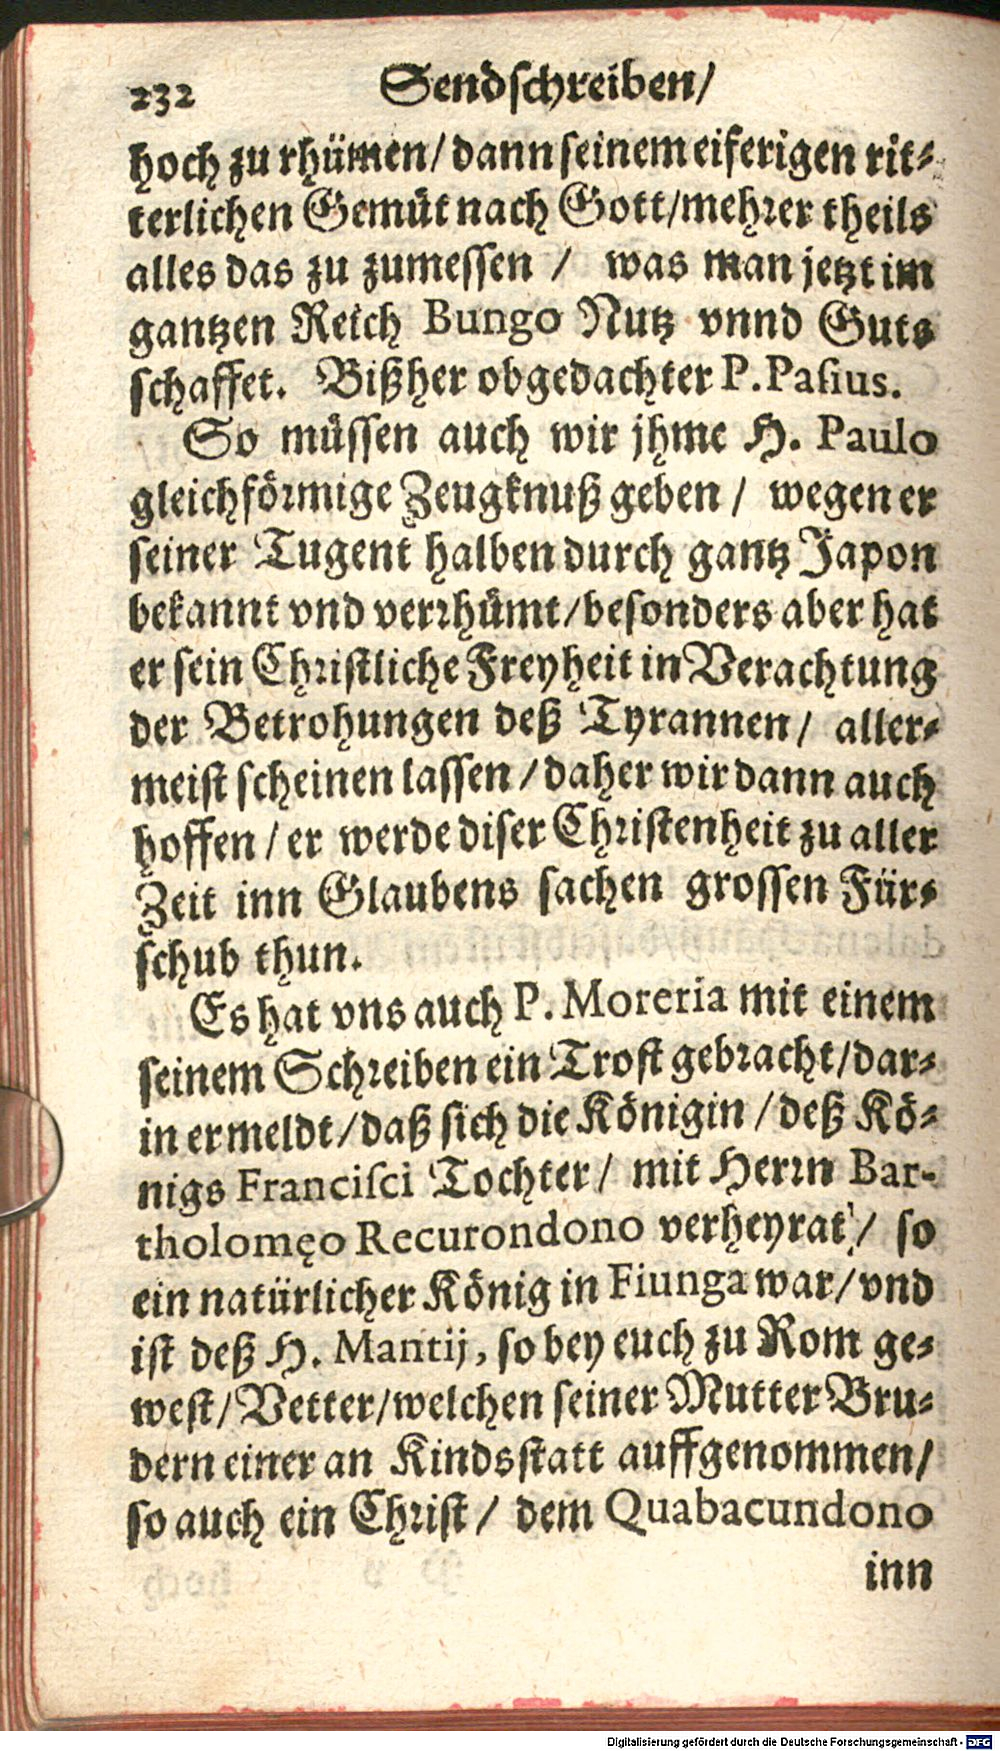 232 Sendschreiben/
hoch zu rhümen/ dann seinem eiferigen rit-
terlichen Gemüt nach Gott/mehrer theils
alles das zu zumessen / was man jetzt im
gantzen Reich Bungo Nutz vnnd Guts
schaffet. Bißher obgedachter P. Pasius.
So müssen auch wir jhme H. Paulo
gleichförmige Zeugknuß geben / wegen er
seiner Tugent halben durch gantz Japon
bekannt vnd verrhümt/besonders aber hat
er sein Christliche Freyheit in Verachtung
der Betrohungen deß Tyrannen/ aller-
meist scheinen lassen / daher wir dann auch
hoffen / er werde diser Christenheit zu aller
Zeit inn Glaubens sachen grossen Für-
schub thun.
Es hat vns auch P. Moreria mit einem
seinem Schreiben ein Trost gebracht/dar-
in er meldt/daß sich die Königin / deß Kö-
nigs Francisci Tochter/ mit Herrn Bar-
tholomęo Recurondono verheyrat/ so
ein natürlicher König in Fiunga war/vnd
ist deß H. Mantij, so bey euch zu Rom ge-
west/Vetter/welchen seiner Mutter Bru-
dern einer an Kindsstatt auffgenommen/
so auch ein Christ / dem Quabacundono
inn
Digitalisierung gefördert durch die Deutsche Forschungsgemeinschaft - DFG